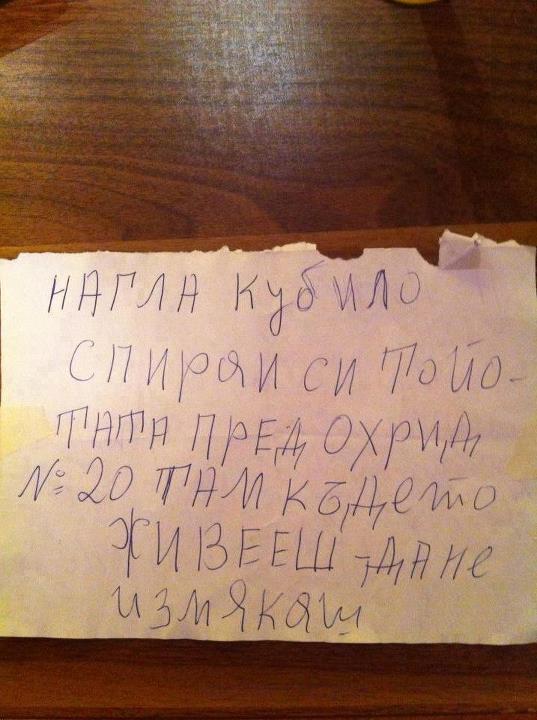 НАГЛА КубИЛО
СПИРАИ СИ ТОЙО-
ТАТА ПРЕД ОХРИД
№ 20 ТАМ КЪДето
ЖИВЕЕШ - ДА не
измякаш